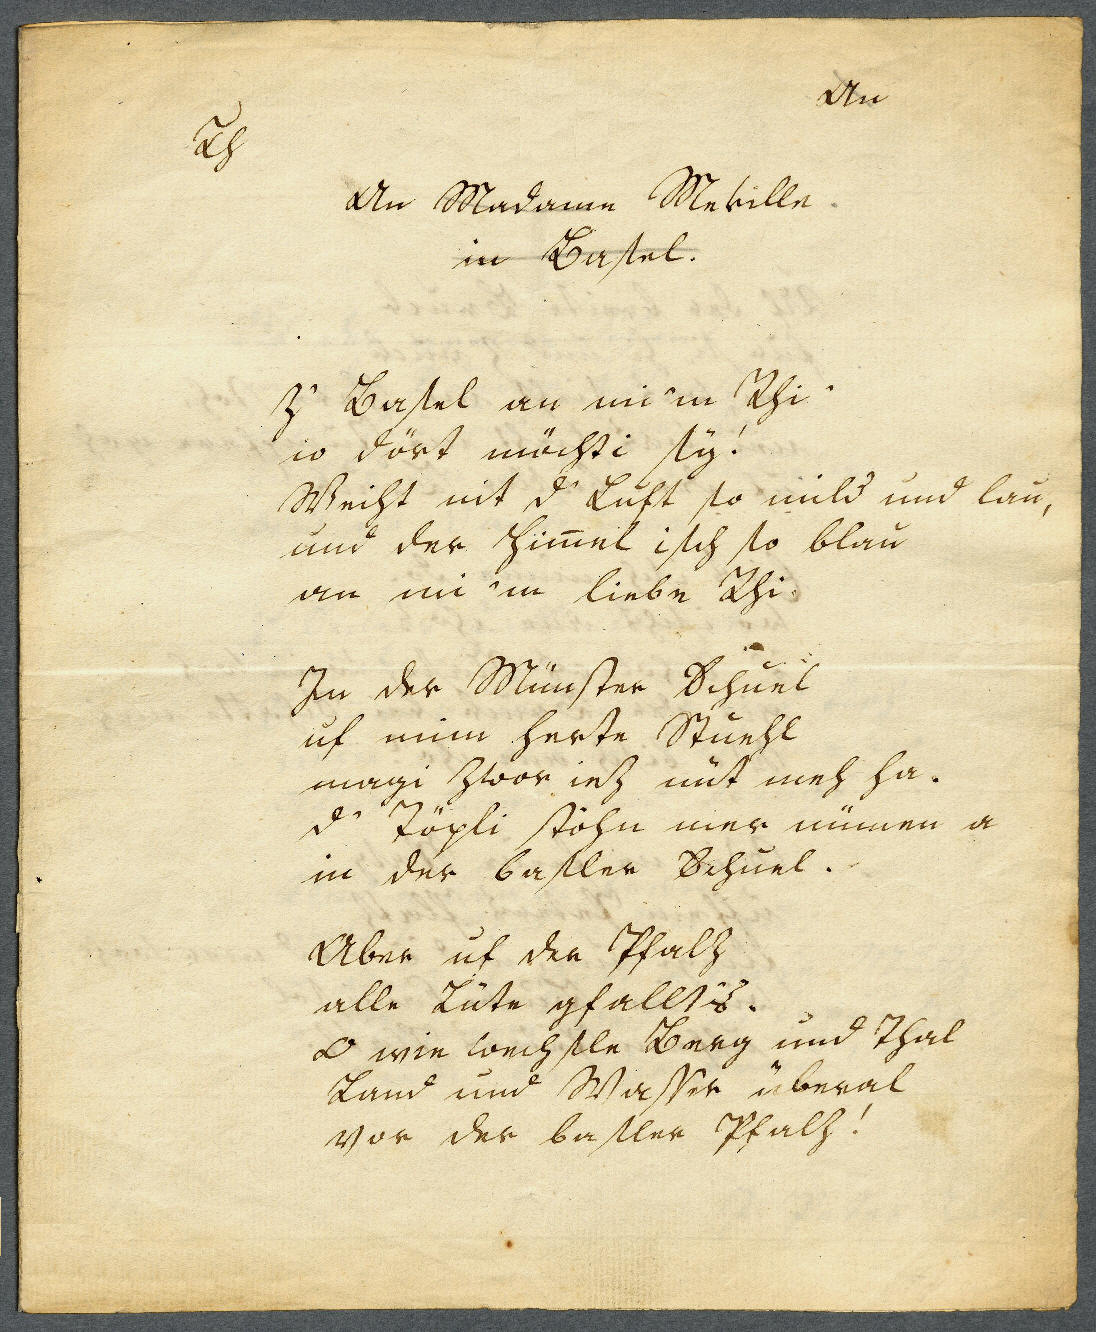 An
Th
An Madame Meville.
in Basel.
Z' Basel an mi'm Rhi
io dört möchti sÿ!
Weiht nit d' Luft so mild und lau,
und der Himmel isch so blau
an mi'm liebe Rhi.
In der Münster Schuel
uf mim herte Stuehl
magi zwor iez nüt meh ha.
d' Töpli stöhn mer nümmen a
in der basler Schuel.
Aber uf der Pfalz
alle Lüte gfallts.
O wie wechsle Berg und Thal
Land und Wasser überal
vor der basler Pfalz!